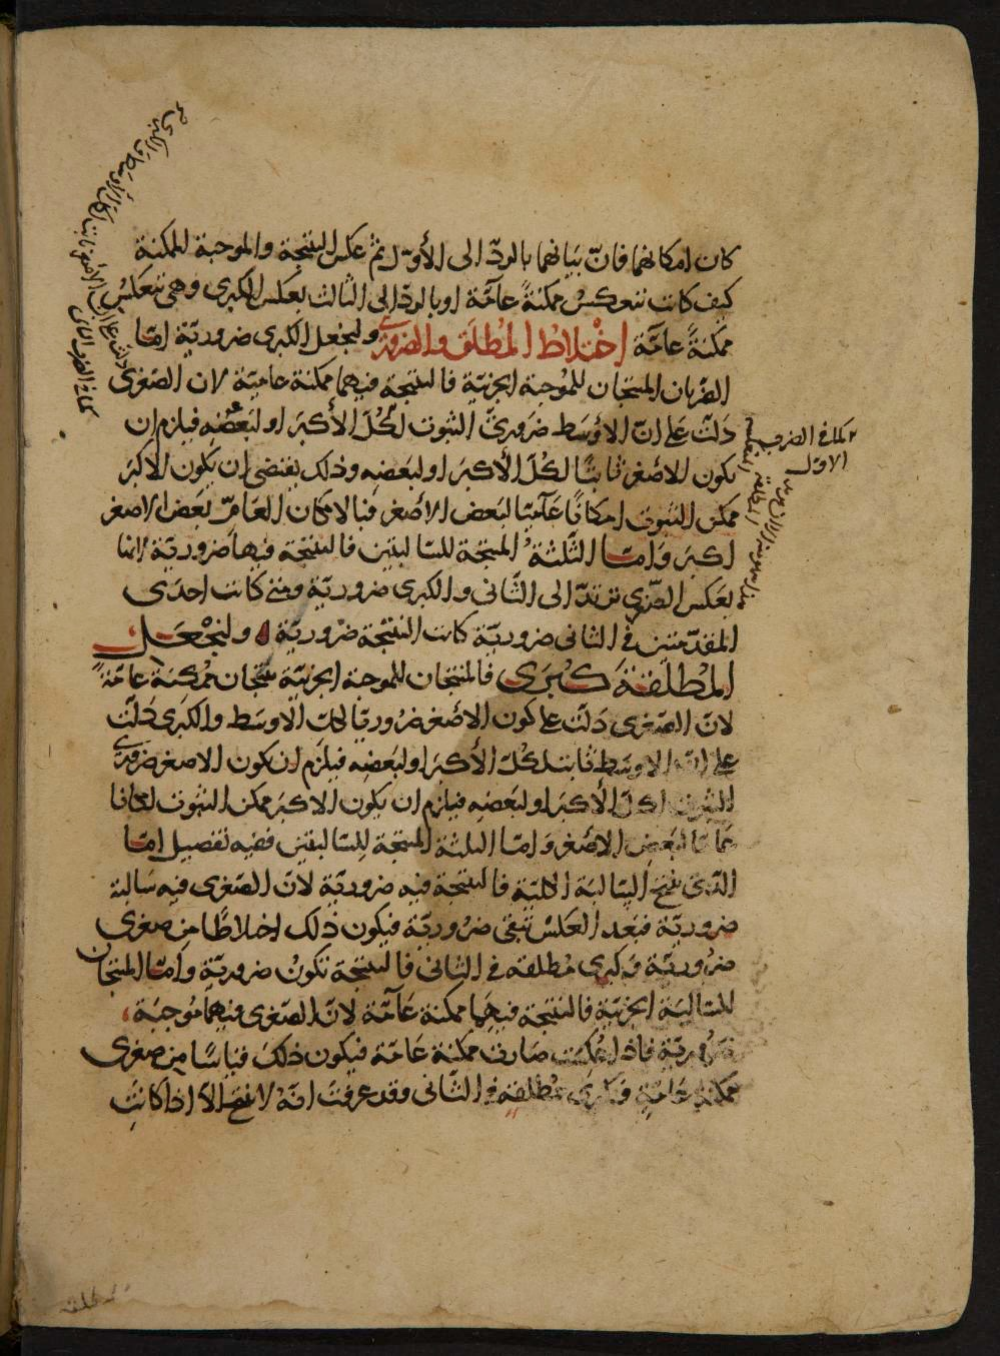 كان امكانهما فانّ بيانهما بالردّ الى الأوّل ثمّ عكس النتيجة والموجبة الممكنة
كيف كانت تنعكس ممكنةً عامّة او بالردّ الى الثالث بعكس الكبرى وهى تنعكس
ممكنةً عامّة اختلاط المطلق والضرورى ولنجعل الكبرى ضروريّة امّا
الضربان المنتجان للموجبة الجزئيّة فالنتيجة فيهما ممكنة عاميّة لان الصغرى
دلّت على انّ الاوسط ضرورىّ الثبوت لكلّ الأكبر او لبعضه فيلزم ان
يكون الاصغر ثابتًا لكلّ الأكبر او لبعضه وذلك يقتضى ان يكون الاكبر
ممكن الثبوت امكانًا عاميًا لبعض الاصغر فبالامكان العامّ بعض الاصغر
اكبر وامّا الثلثة المنتجة للسالبتين فالنتيجة فيها ضروريّة لانها
بعكس الصغرى ترتدّ الى الثانى والكبرى ضروريّة ومتى كانت احدى
المقدّمتين فى الثانى ضروريّة كانت النتيجة ضروريّة ولنجعل
المطلقة كبرى فالمنتجان للموجبة الجزئيّة ينتجان ممكنة عامّةً
لانّ الصغرى دلّت على كون الاصغر ضروريّا لذات الاوسط والكبرى دلّت
على انّ الاوسط ثابت لكلّ الأكبر او لبعضه فيلزم ان يكون الاصغر ضرورى
الثبوت لكلّ الأكبر او لبعضه فيلزم ان يكون الاكبر ممكن الثبوت امكانا
عامّا لبعض الاصغر وامّا الثلثة المنتجة للسالبتين ففيه تفصيل امّا
الذى ينتج السالبة الكليّة فالنتيجة فيه ضروريّة لانّ الصغرى فيه سالبة
ضروريّة فبعد العكس تبقى ضروريّة فيكون ذلك اختلاطًا من صغرى
ضروريّة وكبرى مطلقه فى الثانى فالنتيجة تكون ضروريّة وامّا المنتجان
للسالبة الجزئيّة فالنتيجة فيهما ممكنة عامّة لانّ الصغرى فيهما موجبة
ضروريّة فاذا عكست صارت ممكنة عامّة فيكون ذلك قياسًا من صغرى
ممكنة عاميّة وكبرى مطلقه فى الثانى وقد عرفت انّه لا ينتج الّا اذا كانت
كما فى الضرب
الاوّل